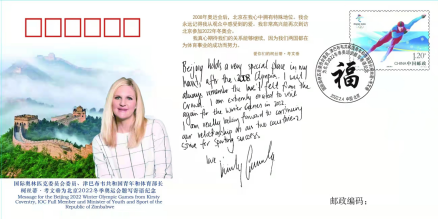 2008年奥运会后，北京在我心中拥有特殊地位，我会
永远记得我从观众中感受到的爱。我非常高兴能再次到访
北京参加2022年冬奥会。
我真心期待我们的关系能继续，因为我们两国都在
为体育事业的成功而努力。
Beijing holds a very special place in my
heart, after the 2008 Olympics. I will
always remember the love I felt from the
crowd. I am extremely excited to visit
again for the winter Games in 2022.
I am really looking forward to continuing
our relationship as our two countries
strive for sporting success.
Love
福
1.20
中国邮政
CHINA
国际奥林匹克委员会委员、津巴布韦共和国青年和体育部长
柯丝蒂·考文垂为北京2022冬季奥运会题写寄语纪念
Message for the Beijing 2022 Winter Olympic Games from Kirsty
Coventry, IOC Full Member and Minister of Youth and Sport of the
Republic of Zimbabwe
邮政编码：